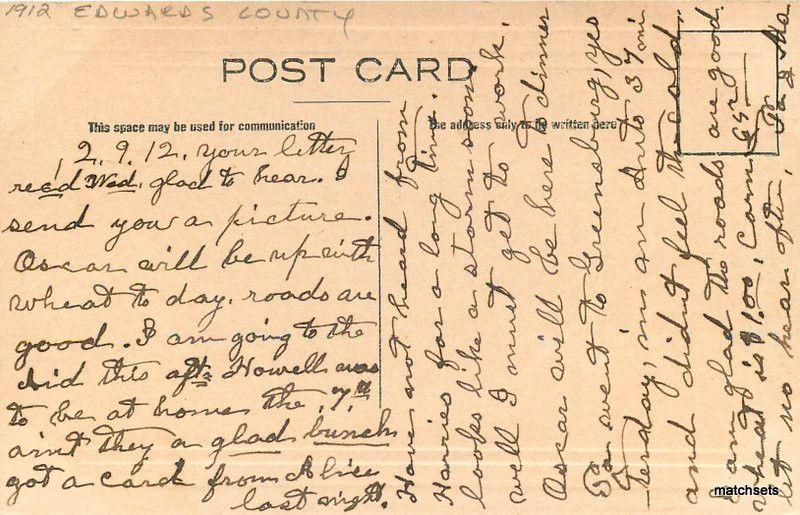 1912 EDWARDS COUNTY
POST CARD
This space may be used for communication
the address only to be written here
12.9.12. your letter
reced Wed. glad to hear. I
send you a picture.
Oscar will be up with
wheat to day. roads are
good. I am going to the
Aid this aft. Howell was
to be at home the 7th
aint they a glad bunch
got a card from Alice
last night.
Have not heard from
Harries for a long time.
looks like a storm soon
well I must get to work.
Oscar will be here to dinner
Pa went to Greensburg, yes
terday, in an Auto 37 mi
and didnt feel the cold.
I am glad the roads are good.
wheat is $1.00, Corn 65¢
let us hear often, Pa & Ma
matchsets